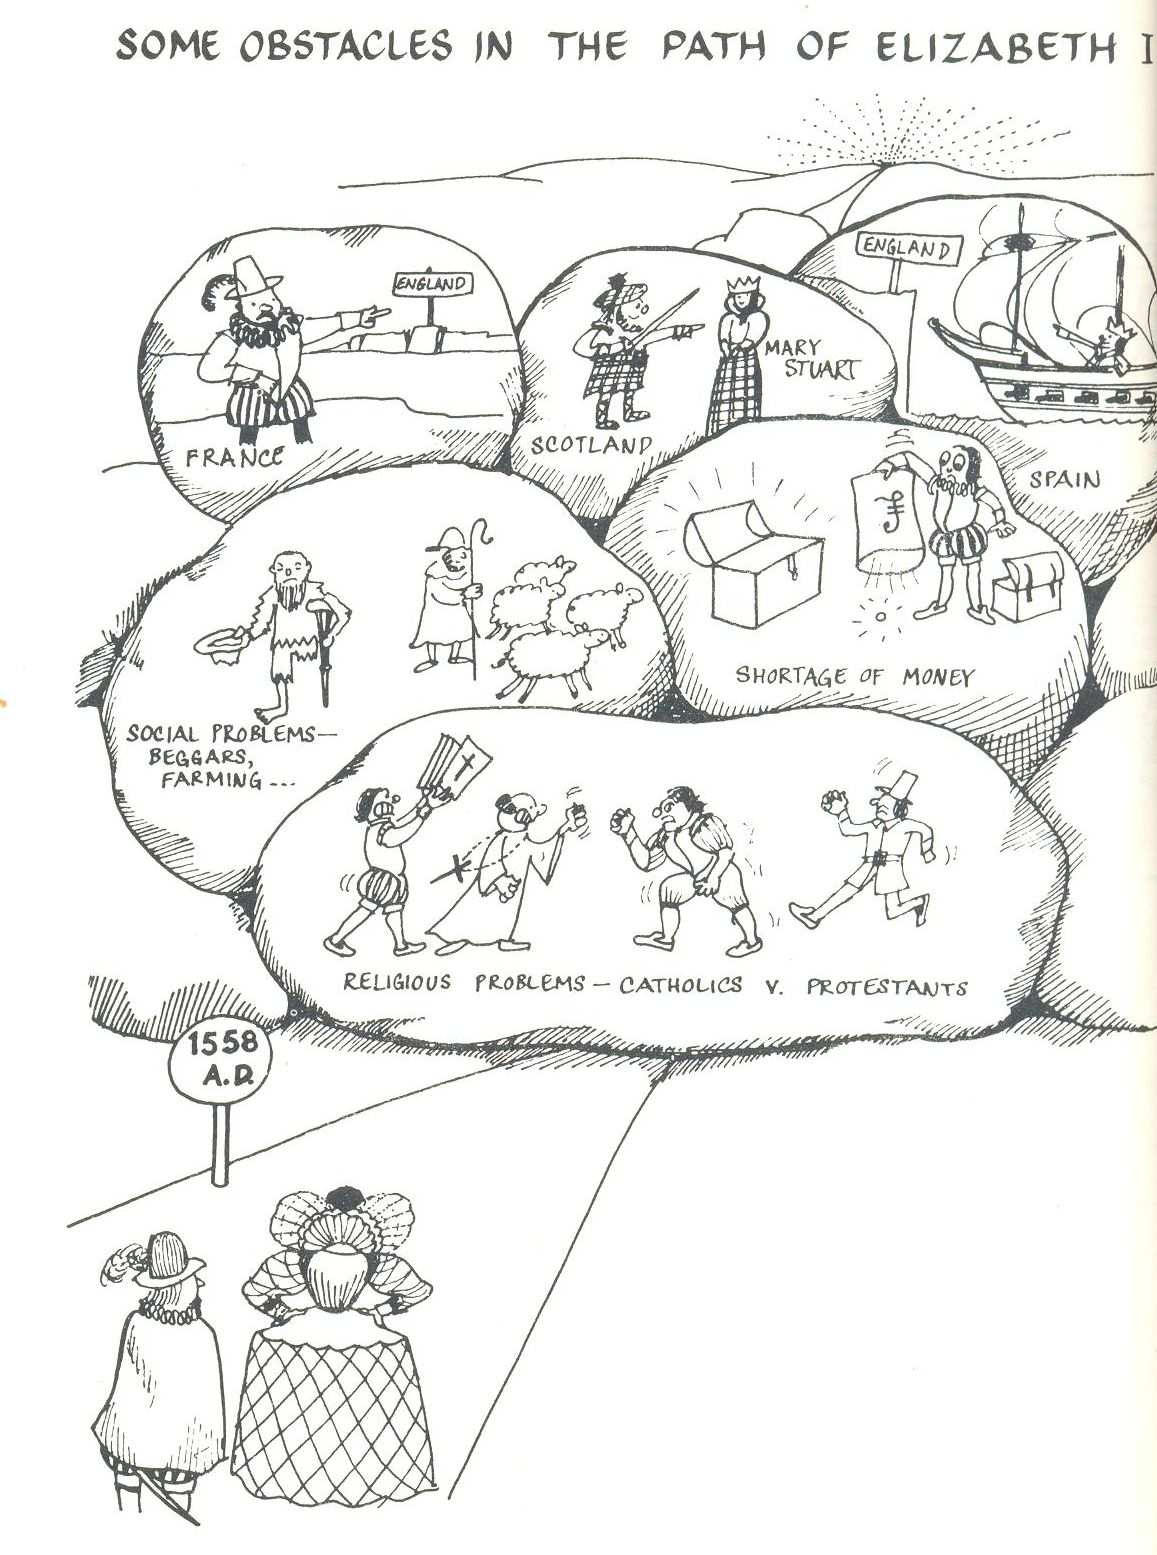 SOME OBSTACLES IN THE PATH OF ELIZABETH I
ENGLAND
FRANCE
SCOTLAND
MARY
STUART
ENGLAND
SPAIN
£
SHORTAGE OF MONEY
SOCIAL PROBLEMS—
BEGGARS,
FARMING...
RELIGIOUS PROBLEMS — CATHOLICS V. PROTESTANTS
1558
A.D.